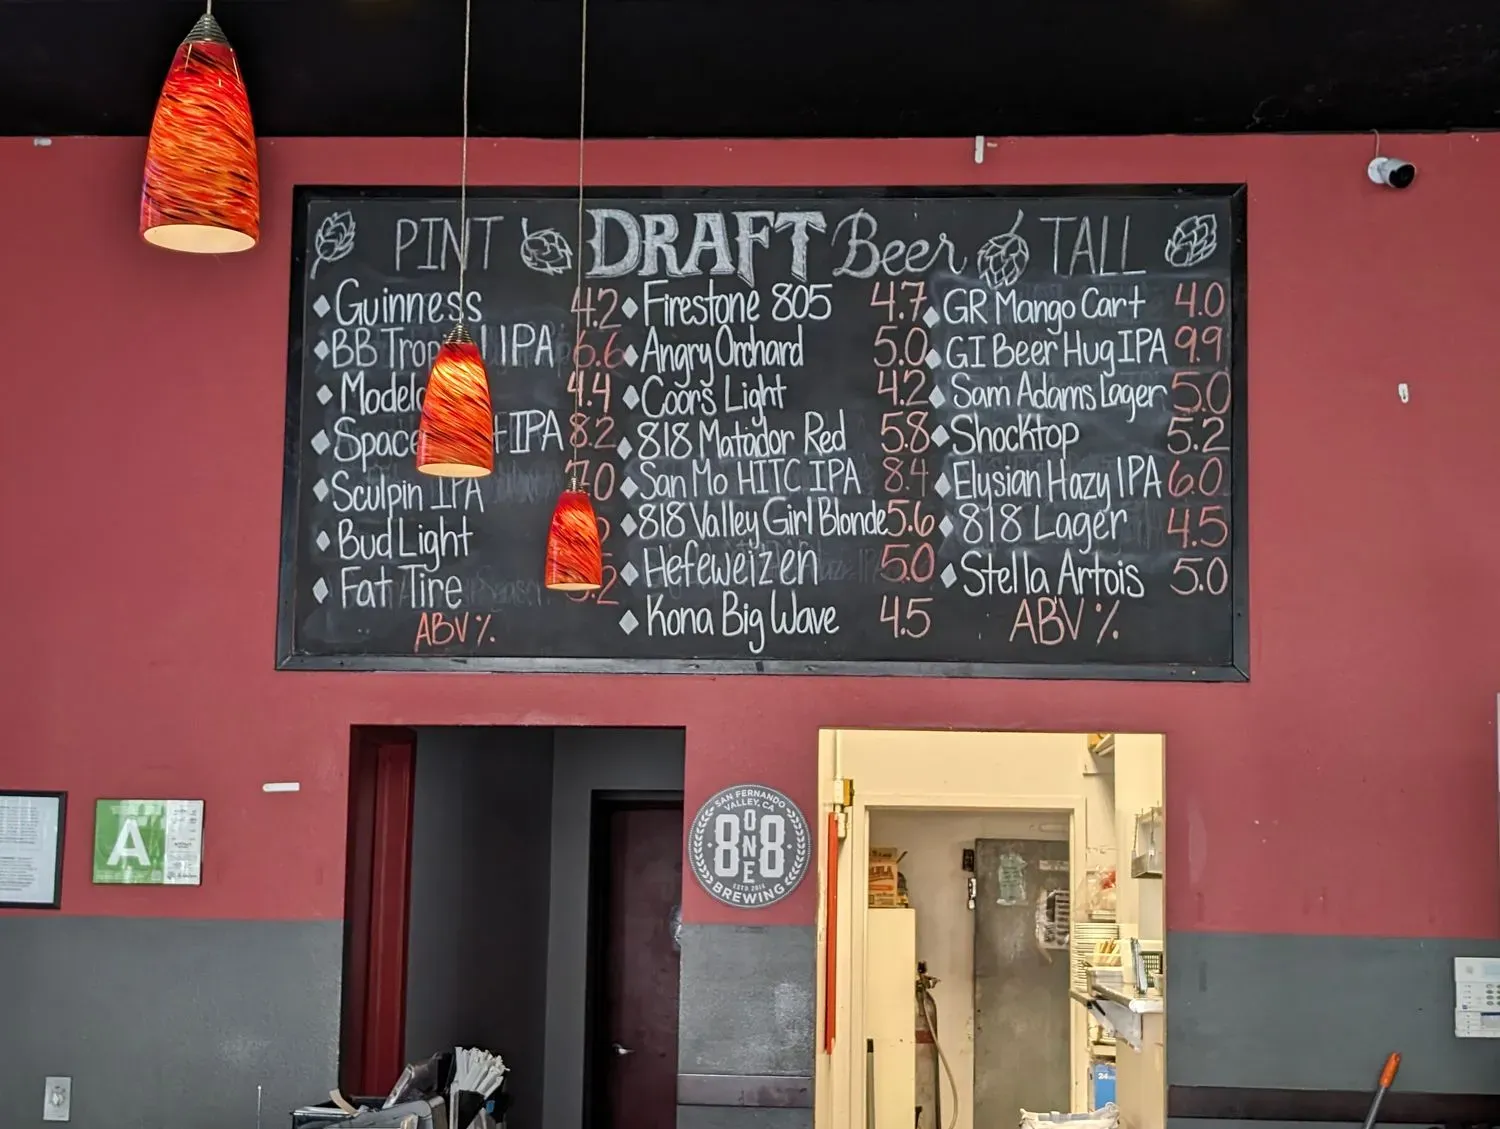 PINT DRAFT Beer TALL
Guinness 4.2
BB IPA 6.6
4.4
Space IPA 8.2
Sculpin IPA
Bud Light
Fat Tire
ABV %
Firestone 805 4.7
Angry Orchard 5.0
Coors Light 4.2
818 Matador Red 5.8
San Mo HITC IPA 8.4
818 Valley Girl Blonde 5.6
Hefeweizen 5.0
Kona Big Wave 4.5
GR Mango Cart 4.0
GI Beer Hug IPA 9.9
Sam Adams Lager 5.0
Shocktop 5.2
Elysian Hazy IPA 6.0
818 Lager 4.5
Stella Artois 5.0
ABV %
A
SAN FERNANDO
VALLEY, CA
8 ONE 8
ESTD 2014
BREWING
24